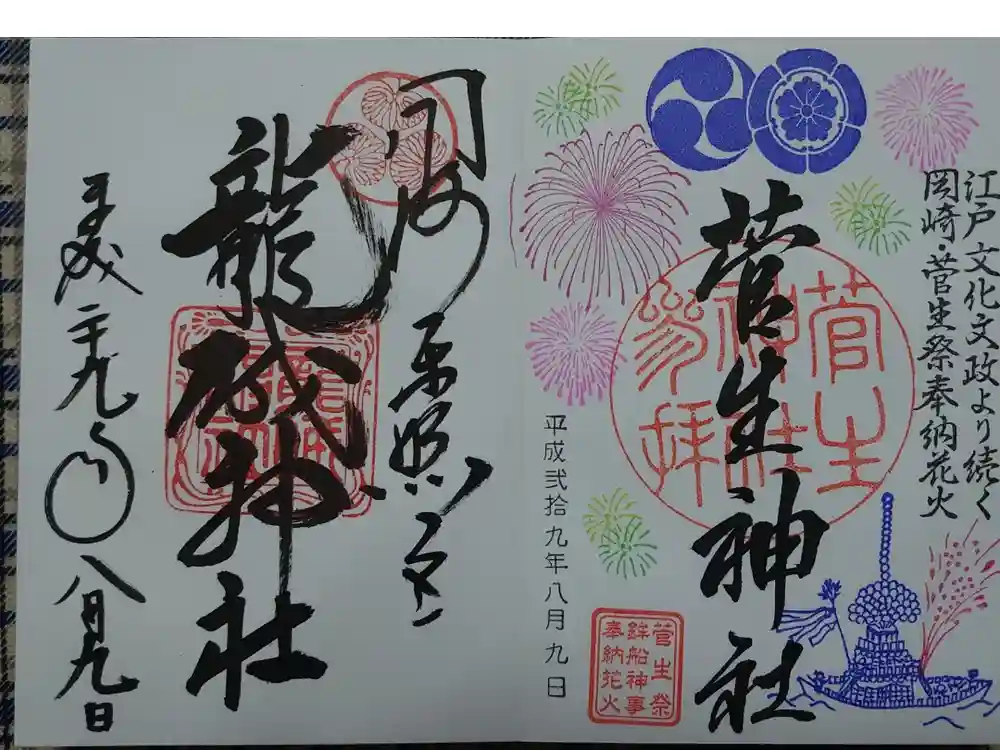 江戸 文化文政より続く
岡崎・菅生祭奉納花火
菅生神社
菅生
神社
参拝
平成弐拾九年八月九日
菅生祭
鉾船神事
奉納花火
龍城神社
八月九日